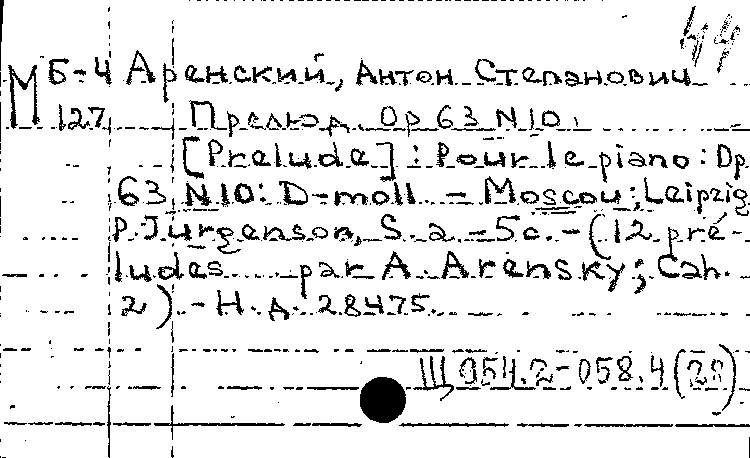 44
М Б-4 Аренский, Антон Степанович
127 Прелюд. Op 63 N10.
[Prelude] : Pour le piano : Op
63 N10 : D-moll. – Moscou ; Leipzig
P. Jurgenson, S. a. – 5c. – (12 pré-
ludes par A. Arensky ; Cah.
2). – Н. д. 28475.
Щ 954.2-058.4(28)